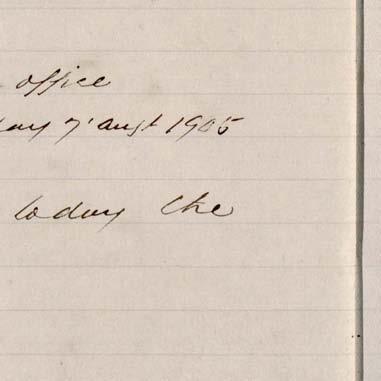 office
day 7' augst 1905
today the